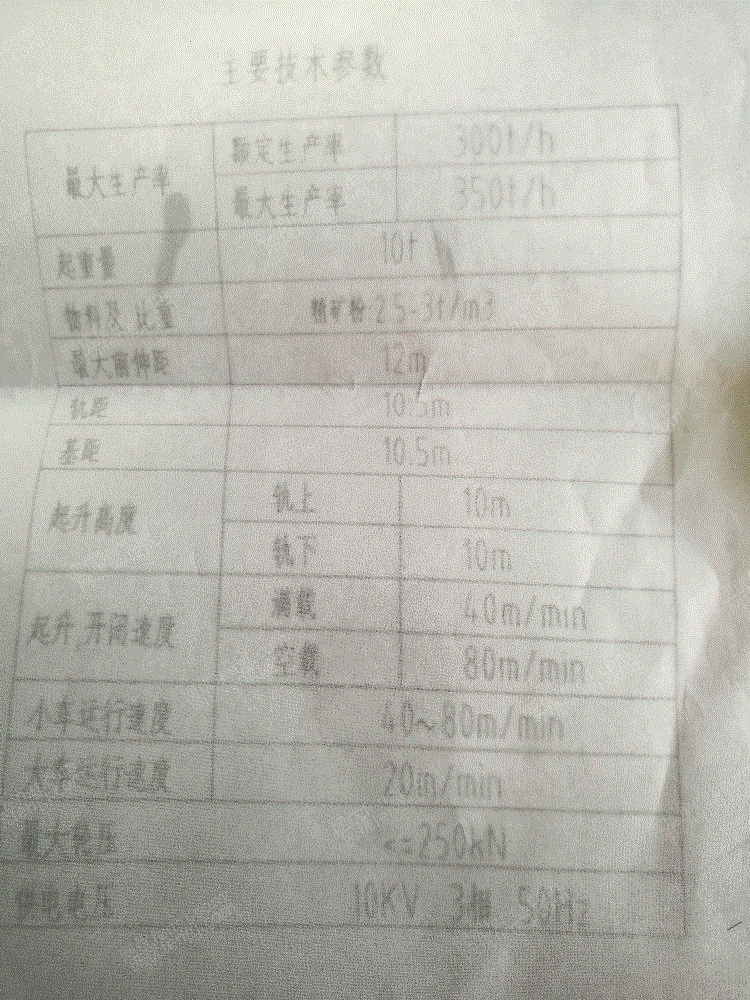 主要技术参数
最大生产率 额定生产率 300t/h
最大生产率 350t/h
起重量 10t
物料及 比重 精矿粉 2.5-3t/m3
最大 伸距 12m
轨距 10.5m
基距 10.5m
起升高度 轨上 10m
轨下 10m
起升,开闭速度 满载 40m/min
空载 80m/min
小车运行速度 40~80m/min
大车运行速度 20m/min
最大轮压 <=250kN
供电电压 10KV 3相 50Hz